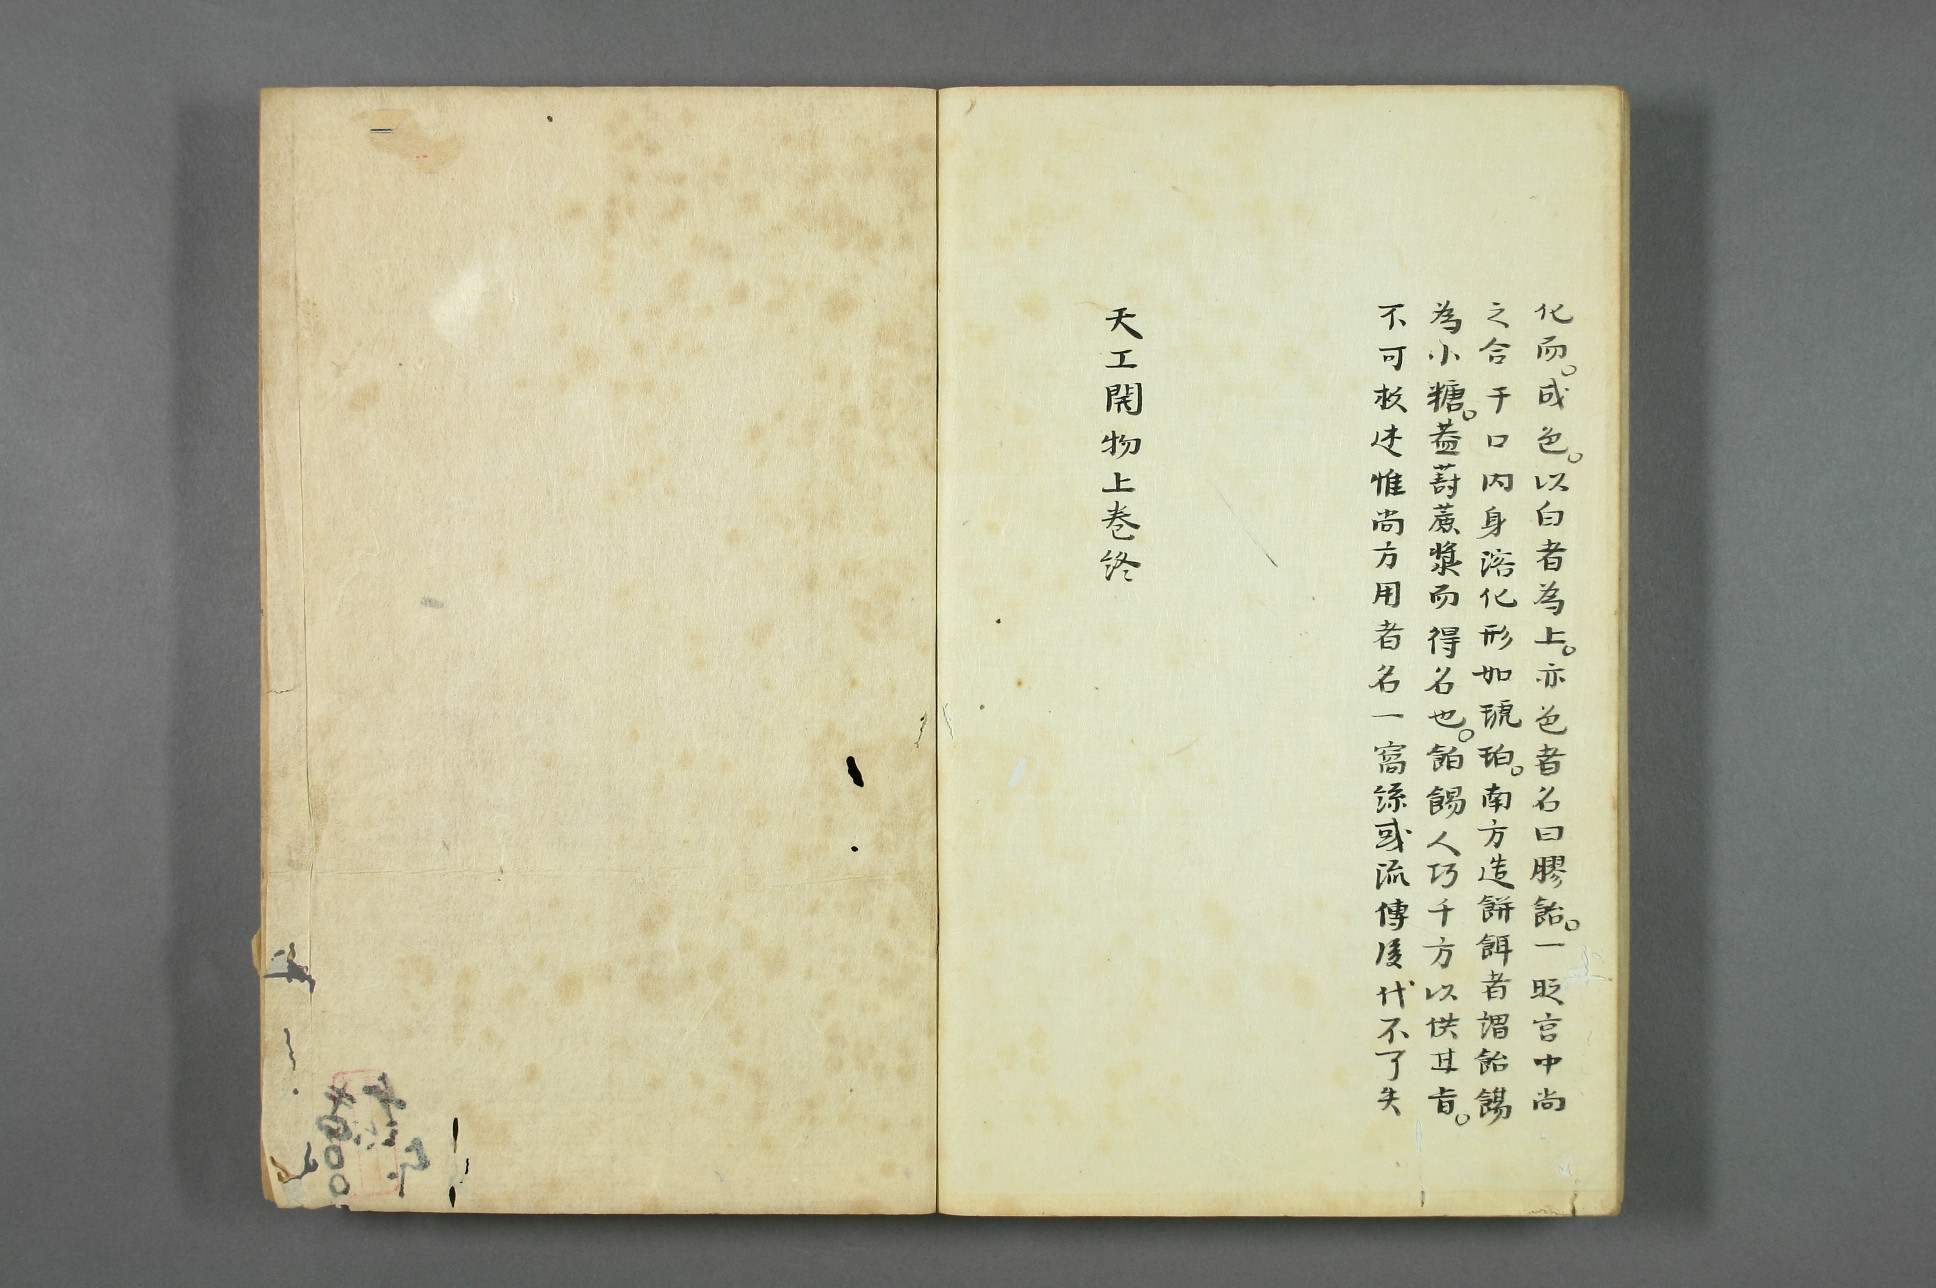 化而。成色。以白者為上。亦色者名曰膠飴。一眨宫中尚
之含于口内身溶化形如琥珀。南方造餅餌者謂飴餳
為小糖。蓋葑蔗漿而得名也。飴餳人巧千方以供甘旨。
不可枚述惟尚方用者名一窩絲或流傳後代不了失
天工開物上巻終